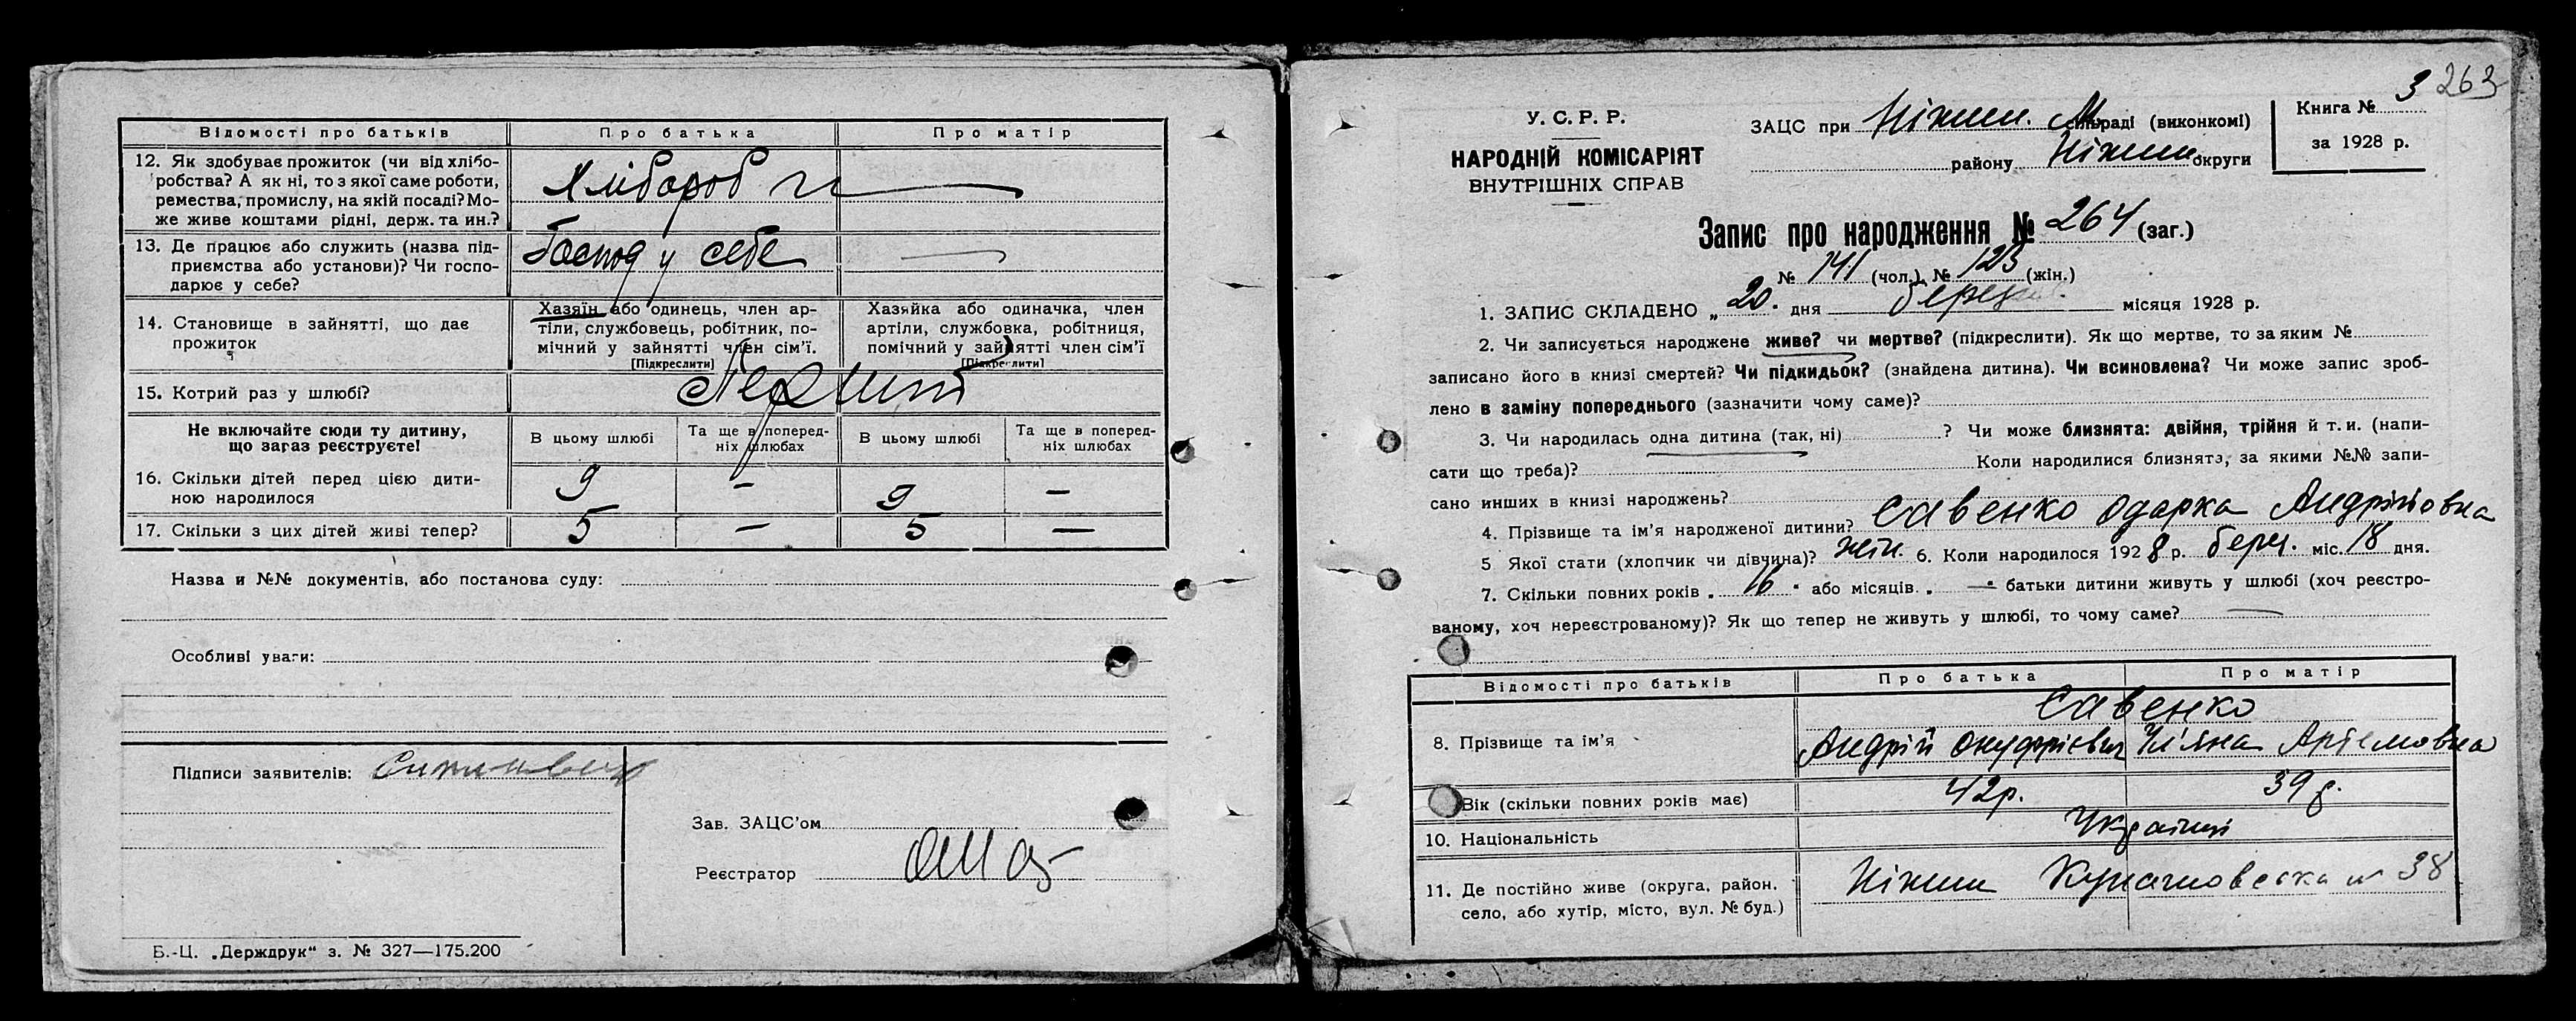 Відомості про батьків Про батька Про матір
12. Як здобуває прожиток (чи від хлібо-
робства? А як ні, то з якої саме роботи,
ремества, промислу, на якій посаді? Мо-
же живе коштами рідні, держ. та ин.?
Хлібороб
13. Де працює або служить (назва під-
приємства або установи)? Чи госпо-
дарює у себе?
Господ у себе —
14. Становище в зайнятті, що дає
прожиток
Хазяїн або одинець, член ар-
тіли, службовець, робітник, по-
мічний у зайнятті член сім'ї.
[Підкреслити]
Хазяйка або одиначка, член
артіли, службовка, робітниця,
помічний у зайнятті член сім'ї
[Підкреслити]
15. Котрий раз у шлюбі?
Перший
Не включайте сюди ту дитину,
що зараз реєструєте!
В цьому шлюбі
Та ще в поперед-
ніх шлюбах
В цьому шлюбі
Та ще в поперед-
ніх шлюбах
16. Скільки дітей перед цією дити-
ною народилося
9 — 9 —
17. Скільки з цих дітей живі тепер? 5 — 5 —
Назва и №№ документів, або постанова суду:
Особливі уваги:
Підписи заявителів:
Зав. ЗАЦС'ом
Реєстратор
Б.-Ц. „Держдрук“ з. № 327—175.200
263
У. С. Р. Р.
НАРОДНІЙ КОМІСАРІЯТ
ВНУТРІШНІХ СПРАВ
ЗАЦС при Ніжин. М сільраді (виконкомі)
району Ніжин округи
Книга № 3
за 1928 р.
Запис про народження № 264 (заг.)
№ 141 (чол.) № 123 (жін.)
1. ЗАПИС СКЛАДЕНО „ 20 " дня березня місяця 1928 р.
2. Чи записується народжене живе? чи мертве? (підкреслити). Як що мертве, то за яким №
записано його в книзі смертей? Чи підкидьок? (знайдена дитина). Чи всиновлена? Чи може запис зроб-
лено в заміну попереднього (зазначити чому саме)?
3. Чи народилась одна дитина (так, ні) ? Чи може близнята: двійня, трійня й т. и. (напи-
сати що треба)? Коли народилися близнята, за якими №№ запи-
сано инших в книзі народжень?
4. Прізвище та ім'я народженої дитини? Савенко Одарка Андріївна
5 Якої стати (хлопчик чи дівчина)? жін. 6. Коли народилося 1928 р. берез. міс. 18 дня.
7. Скільки повних років „ 16 " або місяців „ — " батьки дитини живуть у шлюбі (хоч реєстро-
ваному, хоч нереєстрованому)? Як що тепер не живуть у шлюбі, то чому саме? —
Відомості про батьків Про батька Про матір
Савенко
8. Прізвище та ім'я Андрій Онуфрієвич Ул'яна Артемовна
Вік (скільки повних років має) 42р. 39р.
10. Національність Україці
11. Де постійно живе (округа, район,
село, або хутір, місто, вул. № буд.)
Ніжин 38